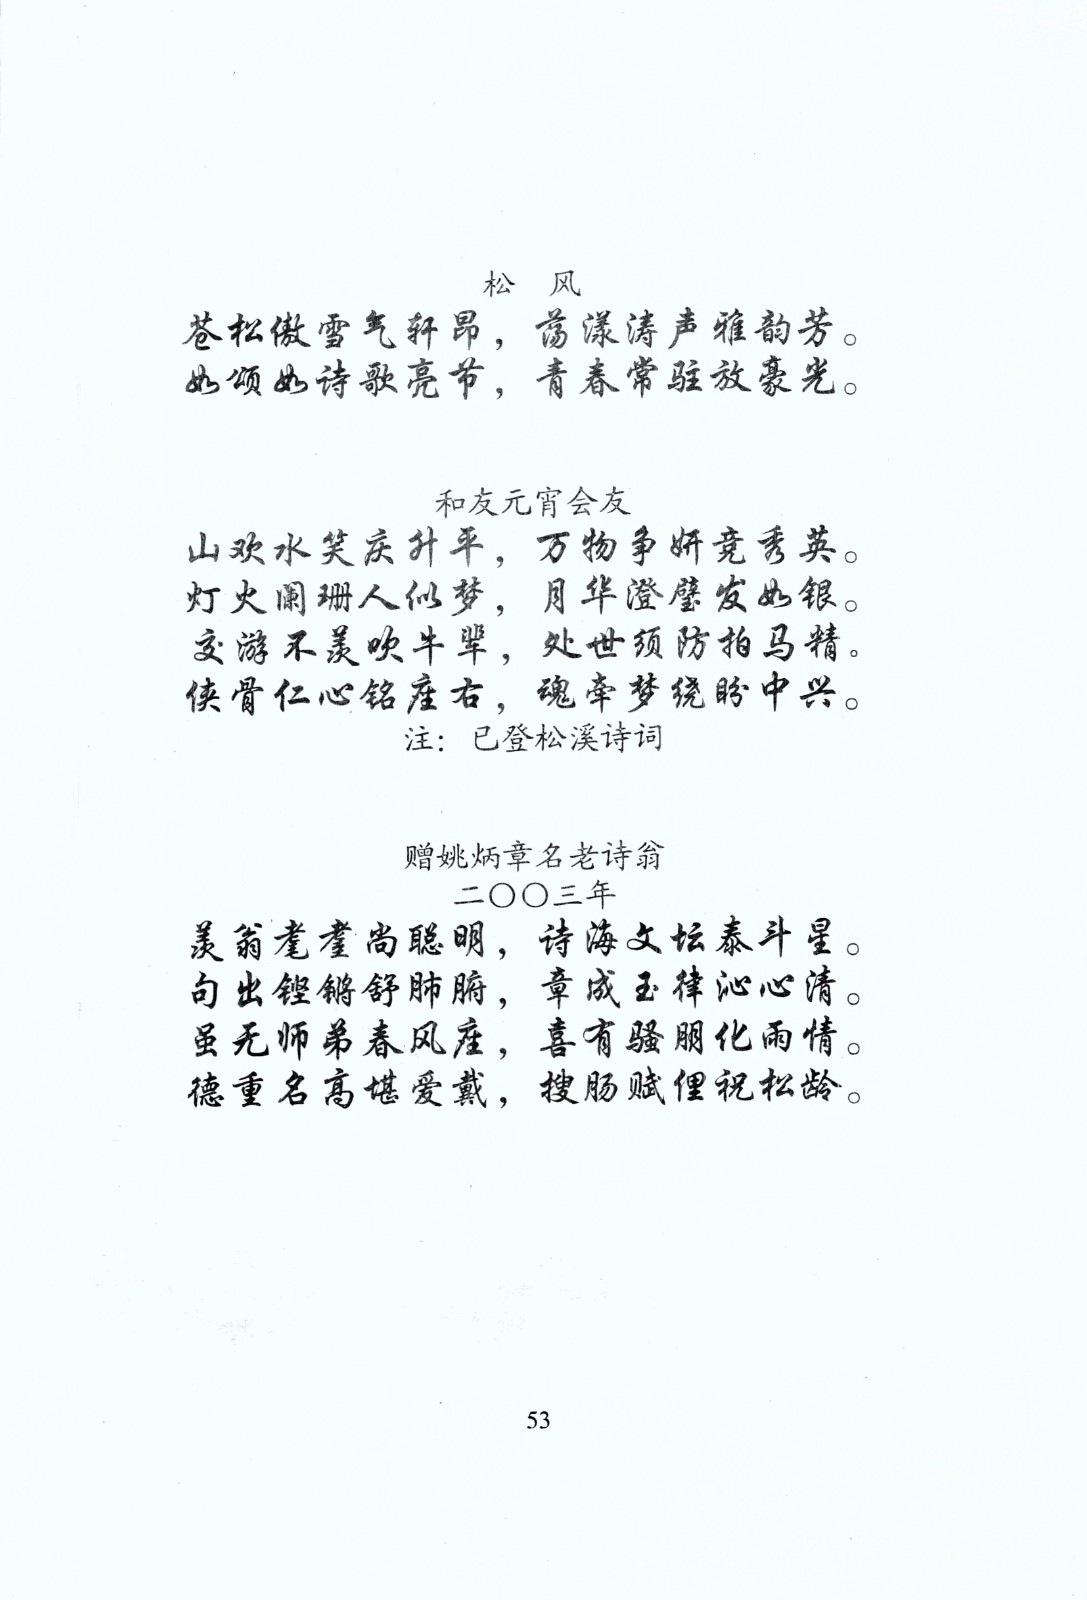 松　风
苍松傲雪气轩昂，荡漾涛声雅韵芳。
如颂如诗歌亮节，青春常驻放豪光。
和友元宵会友
山欢水笑庆升平，万物争妍竞秀英。
灯火阑珊人似梦，月华澄璧发如银。
交游不羡吹牛辈，处世须防拍马精。
侠骨仁心铭座右，魂牵梦绕盼中兴。
注：已登松溪诗词
赠姚炳章名老诗翁
二〇〇三年
羡翁耄耋尚聪明，诗海文坛泰斗星。
句出铿锵舒肺腑，章成玉律沁心清。
虽无师弟春风座，喜有骚朋化雨情。
德重名高堪爱戴，搜肠赋俚祝松龄。
53